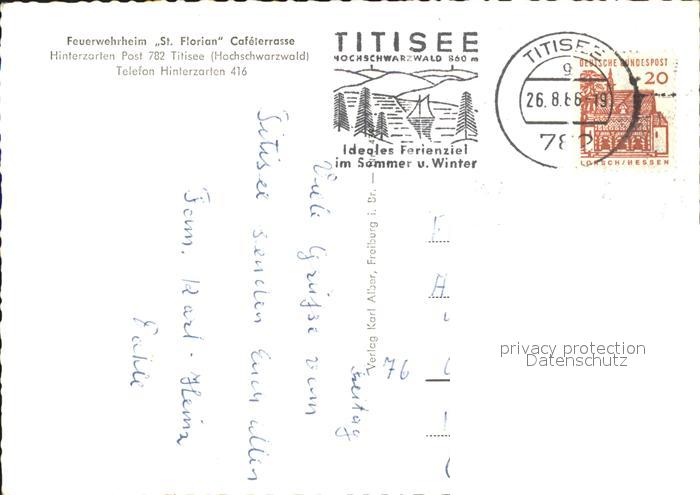 Feuerwehrheim „St. Florian" Caféterrasse
Hinterzarten Post 782 Titisee (Hochschwarzwald)
Telefon Hinterzarten 416
TITISEE
HOCHSCHWARZWALD 860 m
Ideales Ferienziel
im Sommer u. Winter
TITISEE
g
26.8.66-19
782
DEUTSCHE BUNDESPOST
20
LORSCH/HESSEN
Verlag Karl Alber, Freiburg i. Br.
Viele Grüße vom
Titisee senden Euch allen
Fam. Karl-Heinz
76
privacy protection
Datenschutz